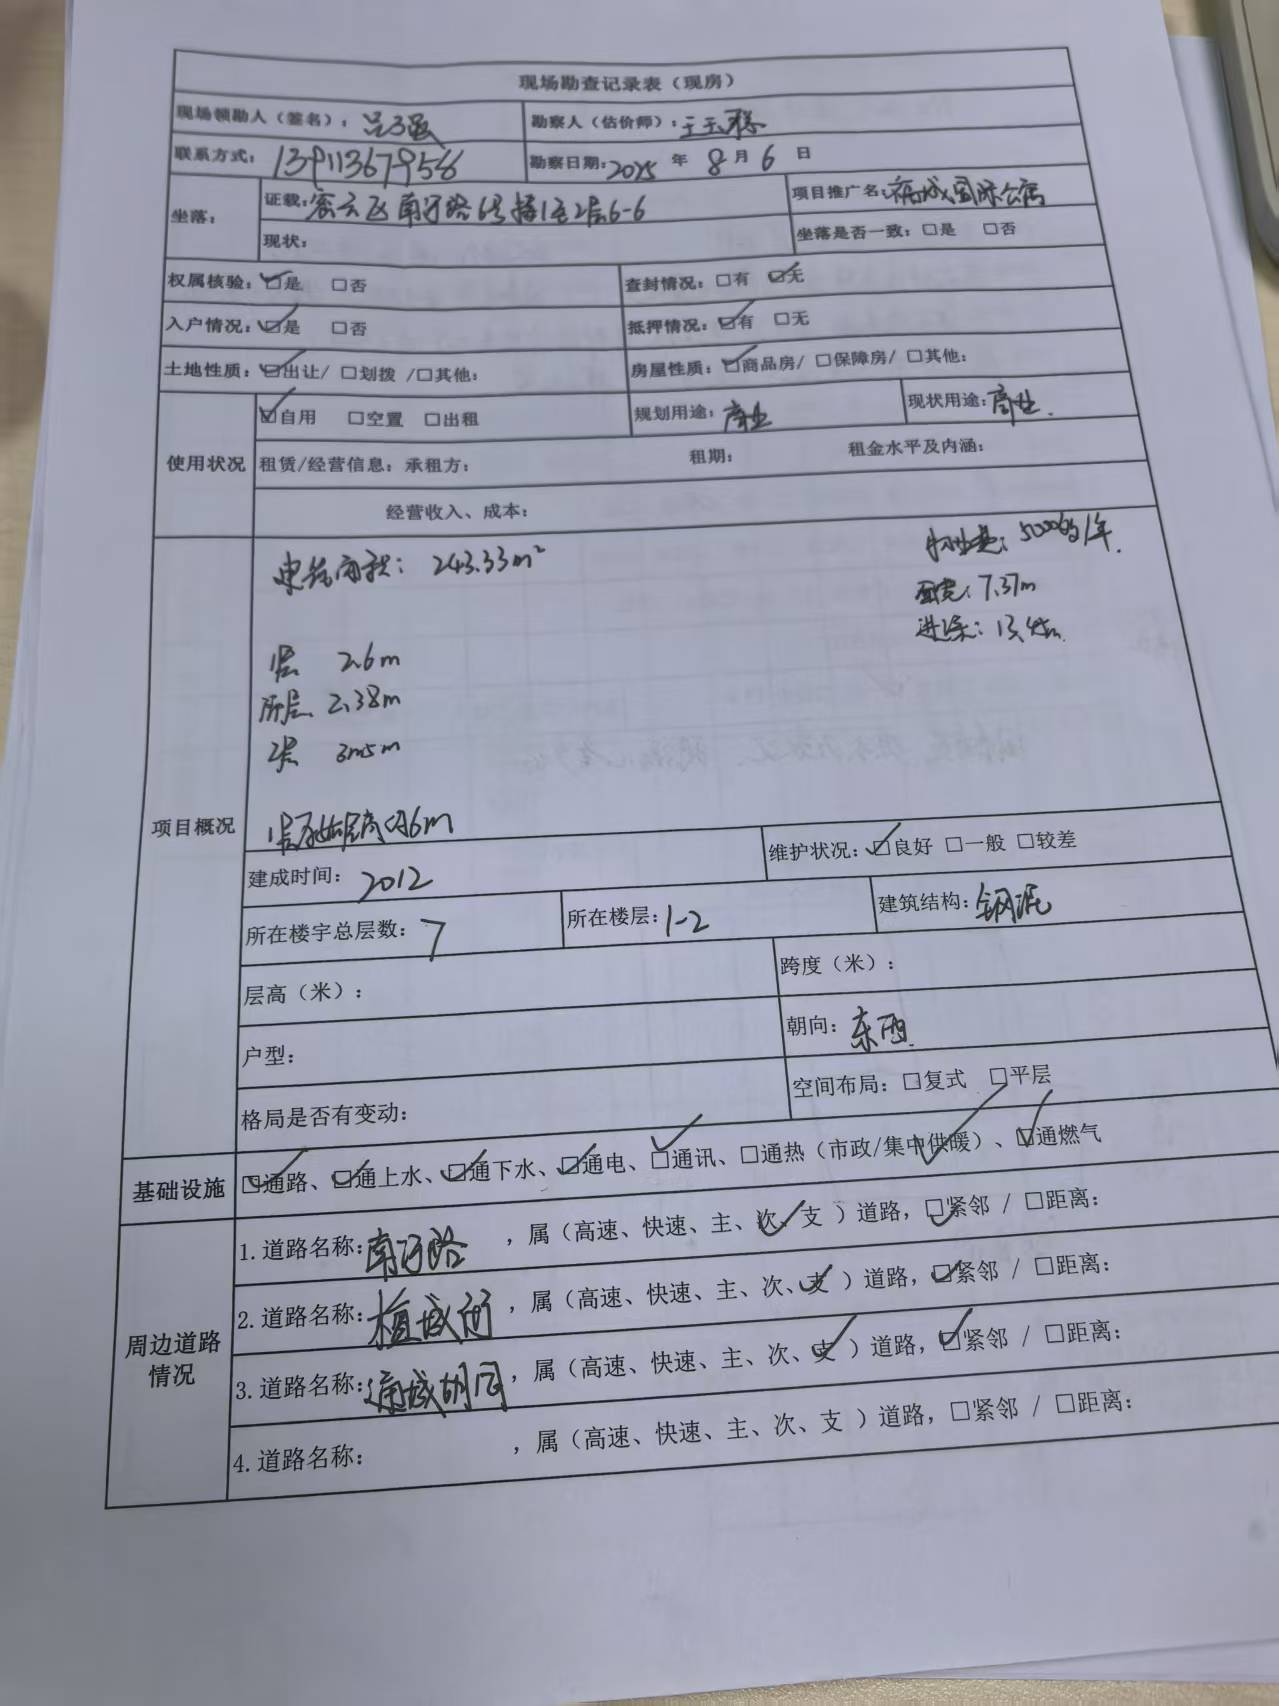 现场勘查记录表（现房）
现场领勘人（签名）：
勘察人（估价师）：
联系方式：13911367956
勘察日期：2025 年 8 月 6 日
坐落：
证载：密云区南河路6号楼1至2层6-6
项目推广名：福城国际公寓
现状：
坐落是否一致：□是 □否
权属核验：☑是 □否
查封情况：□有 ☑无
入户情况：☑是 □否
抵押情况：☑有 □无
土地性质：☑出让/ □划拨 /□其他：
房屋性质：☑商品房/ □保障房/ □其他：
使用状况
☑自用 □空置 □出租
规划用途：商业
现状用途：商业
租赁/经营信息：承租方： 租期： 租金水平及内涵：
经营收入、成本：
项目概况
建筑面积：243.33m²
物业费：5000多/年
面宽：7.37m
进深：
1层 2.6m
所层 2.38m
2层
1层原始层高约6m
建成时间：2012
维护状况：☑良好 □一般 □较差
所在楼宇总层数：7
所在楼层：1-2
建筑结构：钢混
层高（米）：
跨度（米）：
户型：
朝向：东西
格局是否有变动：
空间布局：□复式 □平层
基础设施
☑通路、☑通上水、☑通下水、☑通电、☑通讯、□通热（市政/集中供暖）、☑通燃气
周边道路情况
1.道路名称：南河路，属（高速、快速、主、次、支 ）道路，☑紧邻 / □距离：
2.道路名称：，属（高速、快速、主、次、支 ）道路，☑紧邻 / □距离：
3.道路名称：胡同，属（高速、快速、主、次、支 ）道路，☑紧邻 / □距离：
4.道路名称： ，属（高速、快速、主、次、支 ）道路，□紧邻 / □距离：